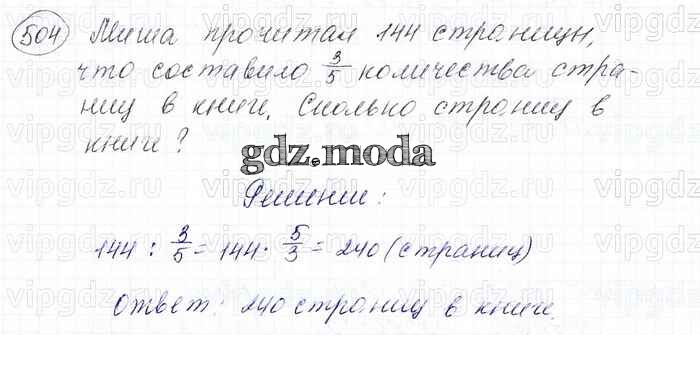 504 Миша прочитал 144 страницы,
что составило 3/5 количества стра-
ниц в книге. Сколько страниц в
книге?
gdz.moda
Решение:
144 : 3/5 = 144 · 5/3 = 240 (страниц)
Ответ: 240 страниц в книге.